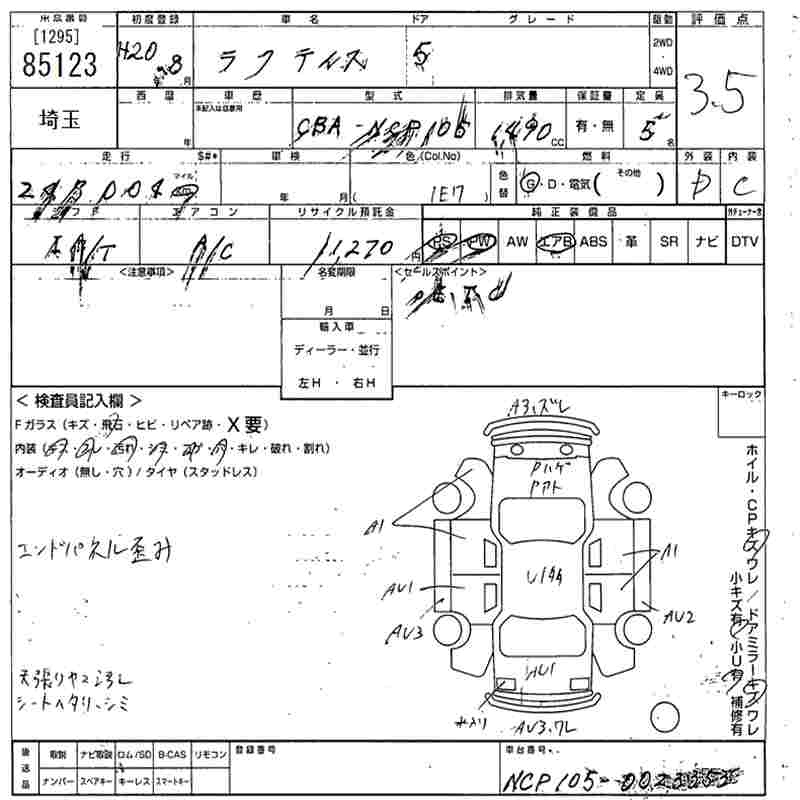 来店番号 初度登録 車名 ドア グレード 駆動 評価点
[1295]
85123
H20 8月
ラクティス
5
2WD
・
4WD
3.5
埼玉
西暦 車歴 型式 排気量 保証書 定員
年
未記入は自家用
CBA-NCP105
1490 CC
有・無
5 名
走行 $#* 車検 色(Col.No) 燃料 外装 内装
マイル
年 月
( 1E7 )
色替
G・D・電気( その他 )
D
C
シフト エアコン リサイクル預託金 純正装備品
/T
A/C
11,270 円
PS PW AW エアB ABS 革 SR ナビ DTV
<注意事項>
名変期限
月 日
<セールスポイント>
輸入車
ディーラー・並行
左H ・ 右H
<検査員記入欄>
キーロック
Fガラス(キズ・飛石・ヒビ・リペア跡・X要)
内装(・キレ・破れ・割れ)
オーディオ(無し・穴)/タイヤ(スタッドレス)
A3、ズレ
Pハゲ
Pアト
A1
A1
エンドパネル歪み
AV1
AV3
AV2
AU1
AV3、ワレ
天張りヤニ汚レ
シートヘタリ、シミ
ホイル・CPキズワレ/ドアミラーキズワレ
小キズ有 小U有 補修有
後送品
取説 ナビ取説 ロム/SD B-CAS リモコン
ナンバー スペアキー キーレス スマートキー
登録番号
車台番号
NCP105-